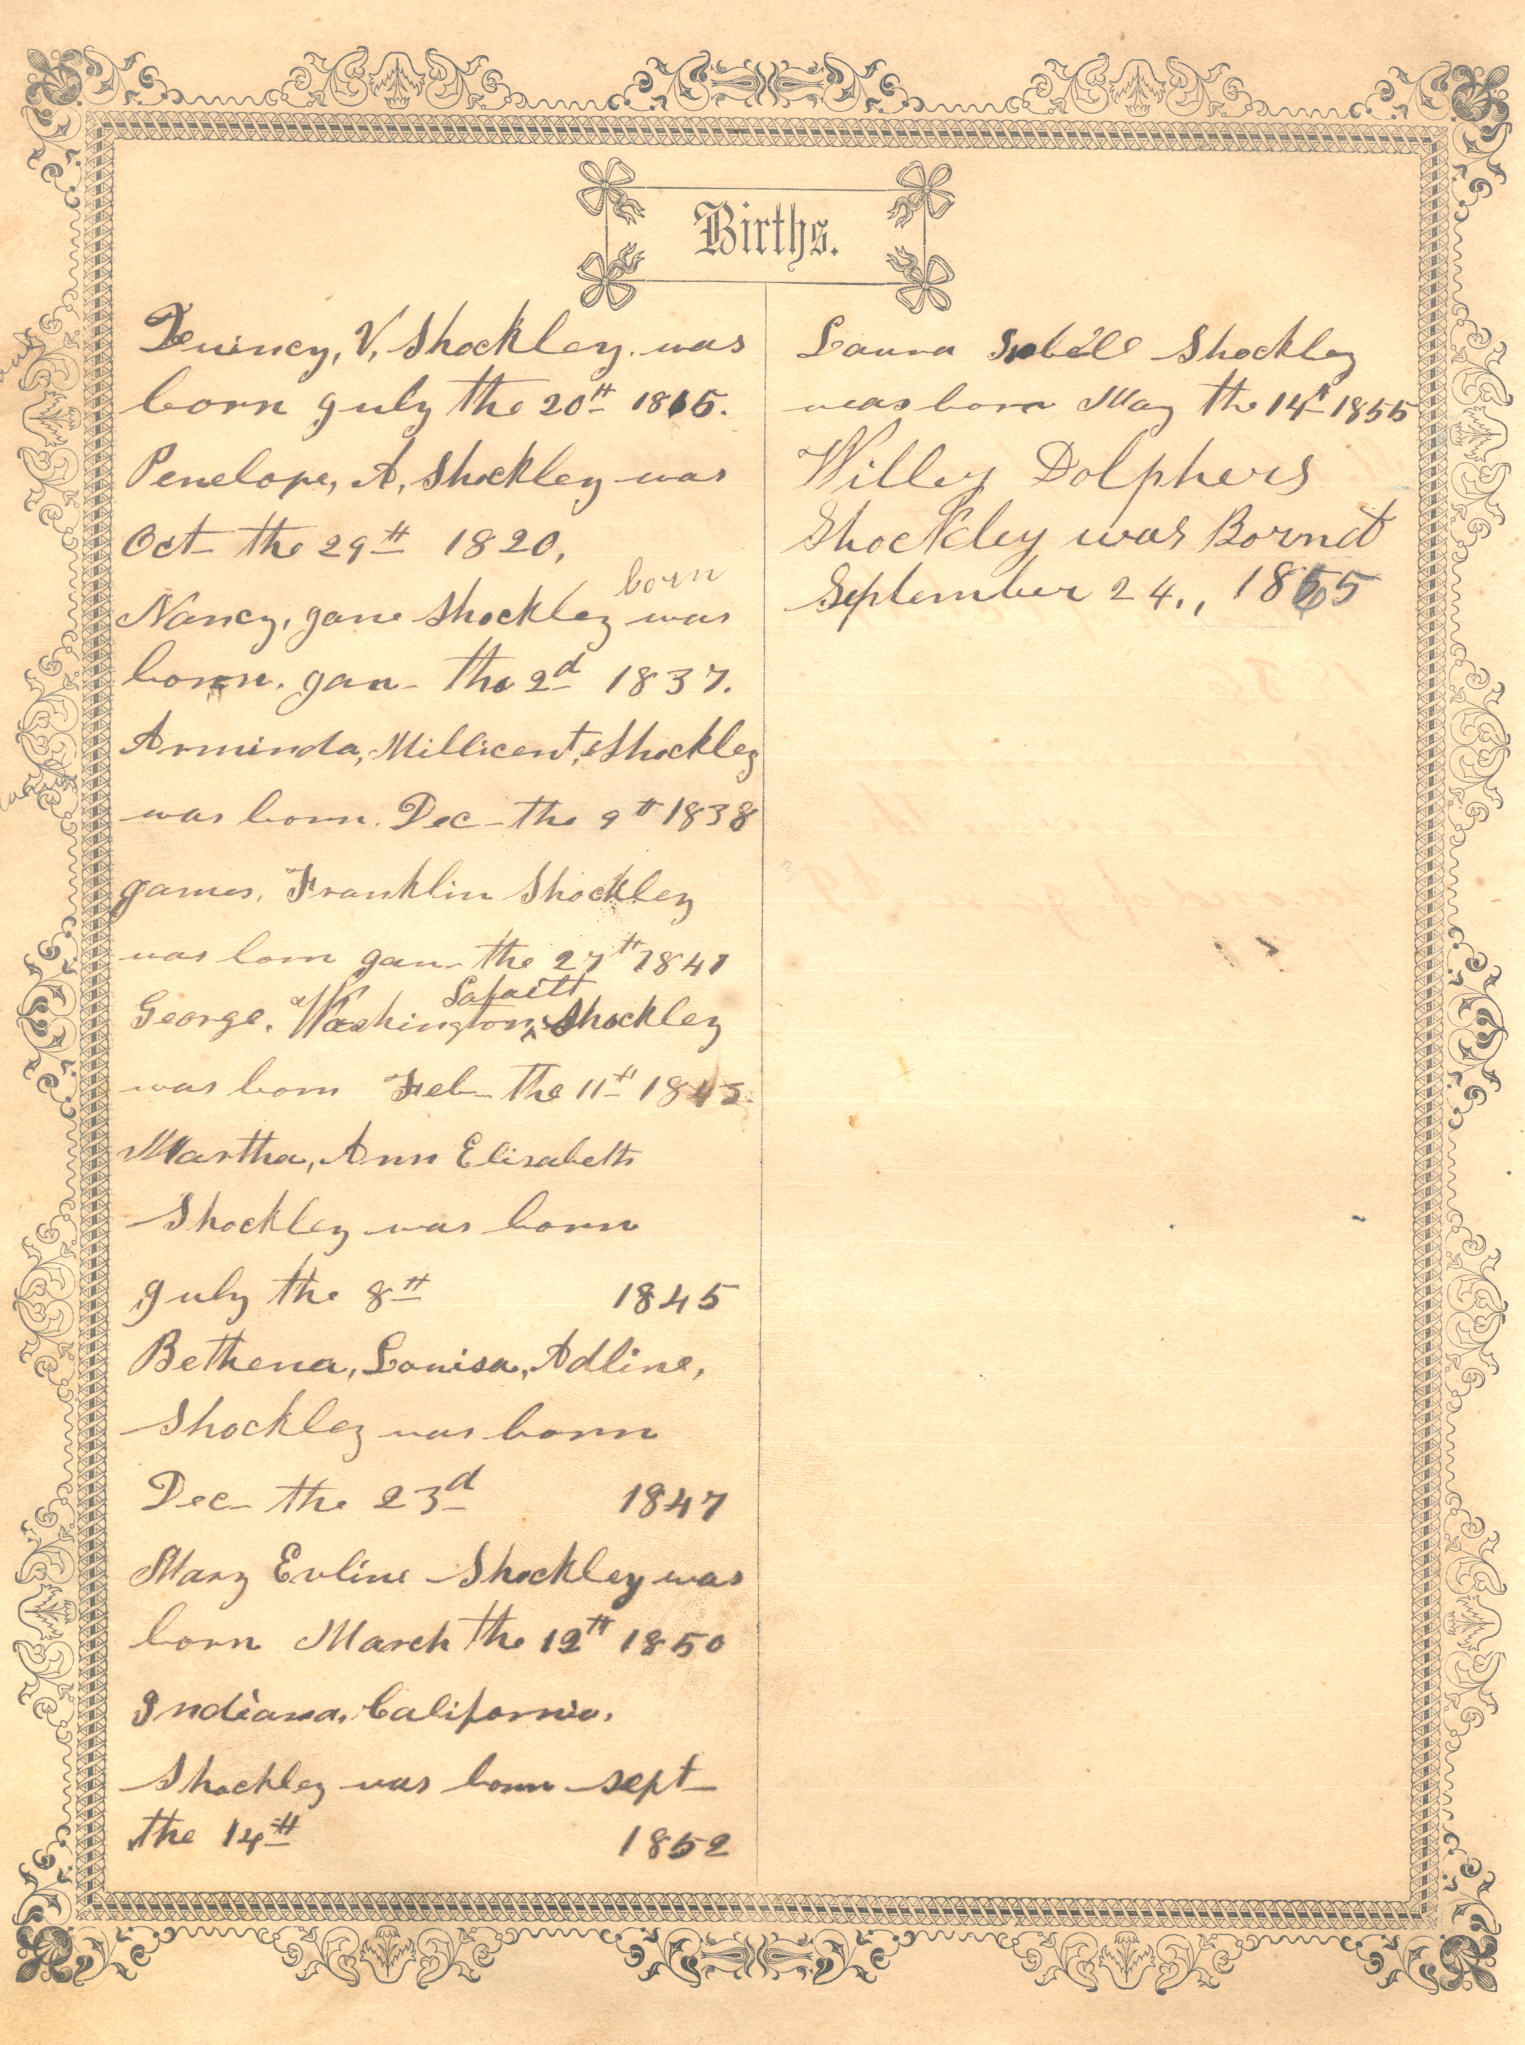 Births.
Quincy, V, Shockley. was
born July the 20th 1815.
Penelope, A, Shockley was
Oct the 29th 1820,
born
Nancy, Jane Shockley was
born. Jan the 2d 1837.
Arminda, Millicent, Shockley
was born. Dec the 9th 1838
James, Franklin Shockley
was born Jan the 27th 1841
Lafaitt
George, Washington, Shockley
was born Feb the 11th 1843.
Martha, Ann Elizabeth
Shockley was born
July the 8th 1845
Bethena, Louisa, Adline,
Shockley was born
Dec the 23d 1847
Mary Evline Shockley was
born March the 12th 1850
Indiana, California,
Shockley was born sept
the 14th 1852
Laura Isabell Shockley
was born May the 14th 1855
Willey Dolphers
Shockley was Bornd
September 24., 1865